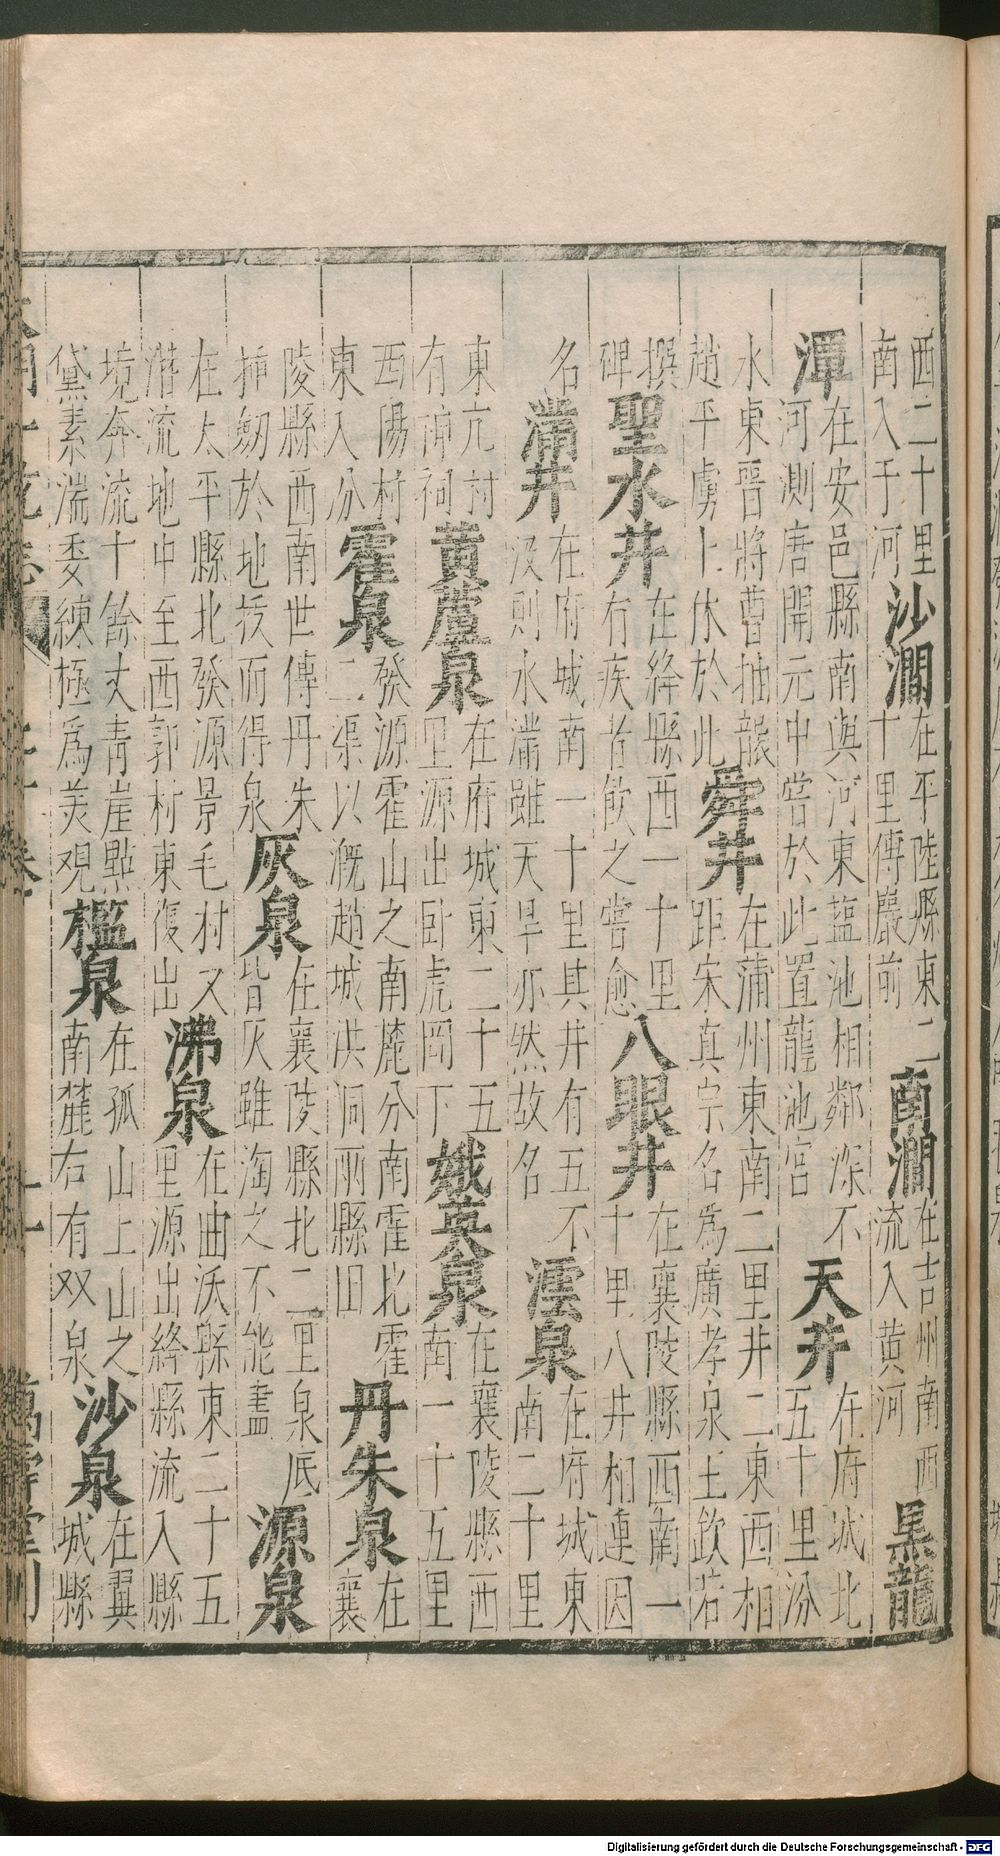 西二十里南入于河沙澗在平陸縣東二十里傳巖前南澗在吉州南西流入黃河黑龍
潭在安邑縣南與河東鹽池相鄰深不河測唐開元中嘗於此置龍池宮天井在府城北五十里汾
水東晉將曹抽襲趙平虜上休於此舜井在蒲州東南二里井二東西相距宋真宗名為廣孝泉王欽若
撰碑聖水井在絳縣西一十里有疾者飲之嘗愈八眼井在襄陵縣西南一十里八井相連因
名滿井在府城南一十里其井有五不汲則水滿雖天旱亦然故名澐泉在府城東南二十里
東亢村有神祠黃蘆泉在府城東二十五里源出臥虎岡下娥英泉在襄陵縣西南一十五里
西陽村東入汾霍泉發源霍山之南麓分南霍北霍二渠以溉趙城洪洞兩縣旧丹朱泉在襄
陵縣西南世傳丹朱插劒於地拔而得泉灰泉在襄陵縣北二里泉底皆灰雖淘之不能盡源泉
在太平縣北發源景毛村又潛流地中至西郭村東復出沸泉在曲沃縣東二十五里源出絳縣流入縣
境奔流十餘丈青崖點黛素湍委練極爲美观檻泉在孤山上山之南麓右有双泉沙泉在翼城縣
Digitalisierung gefördert durch die Deutsche Forschungsgemeinschaft - DFG